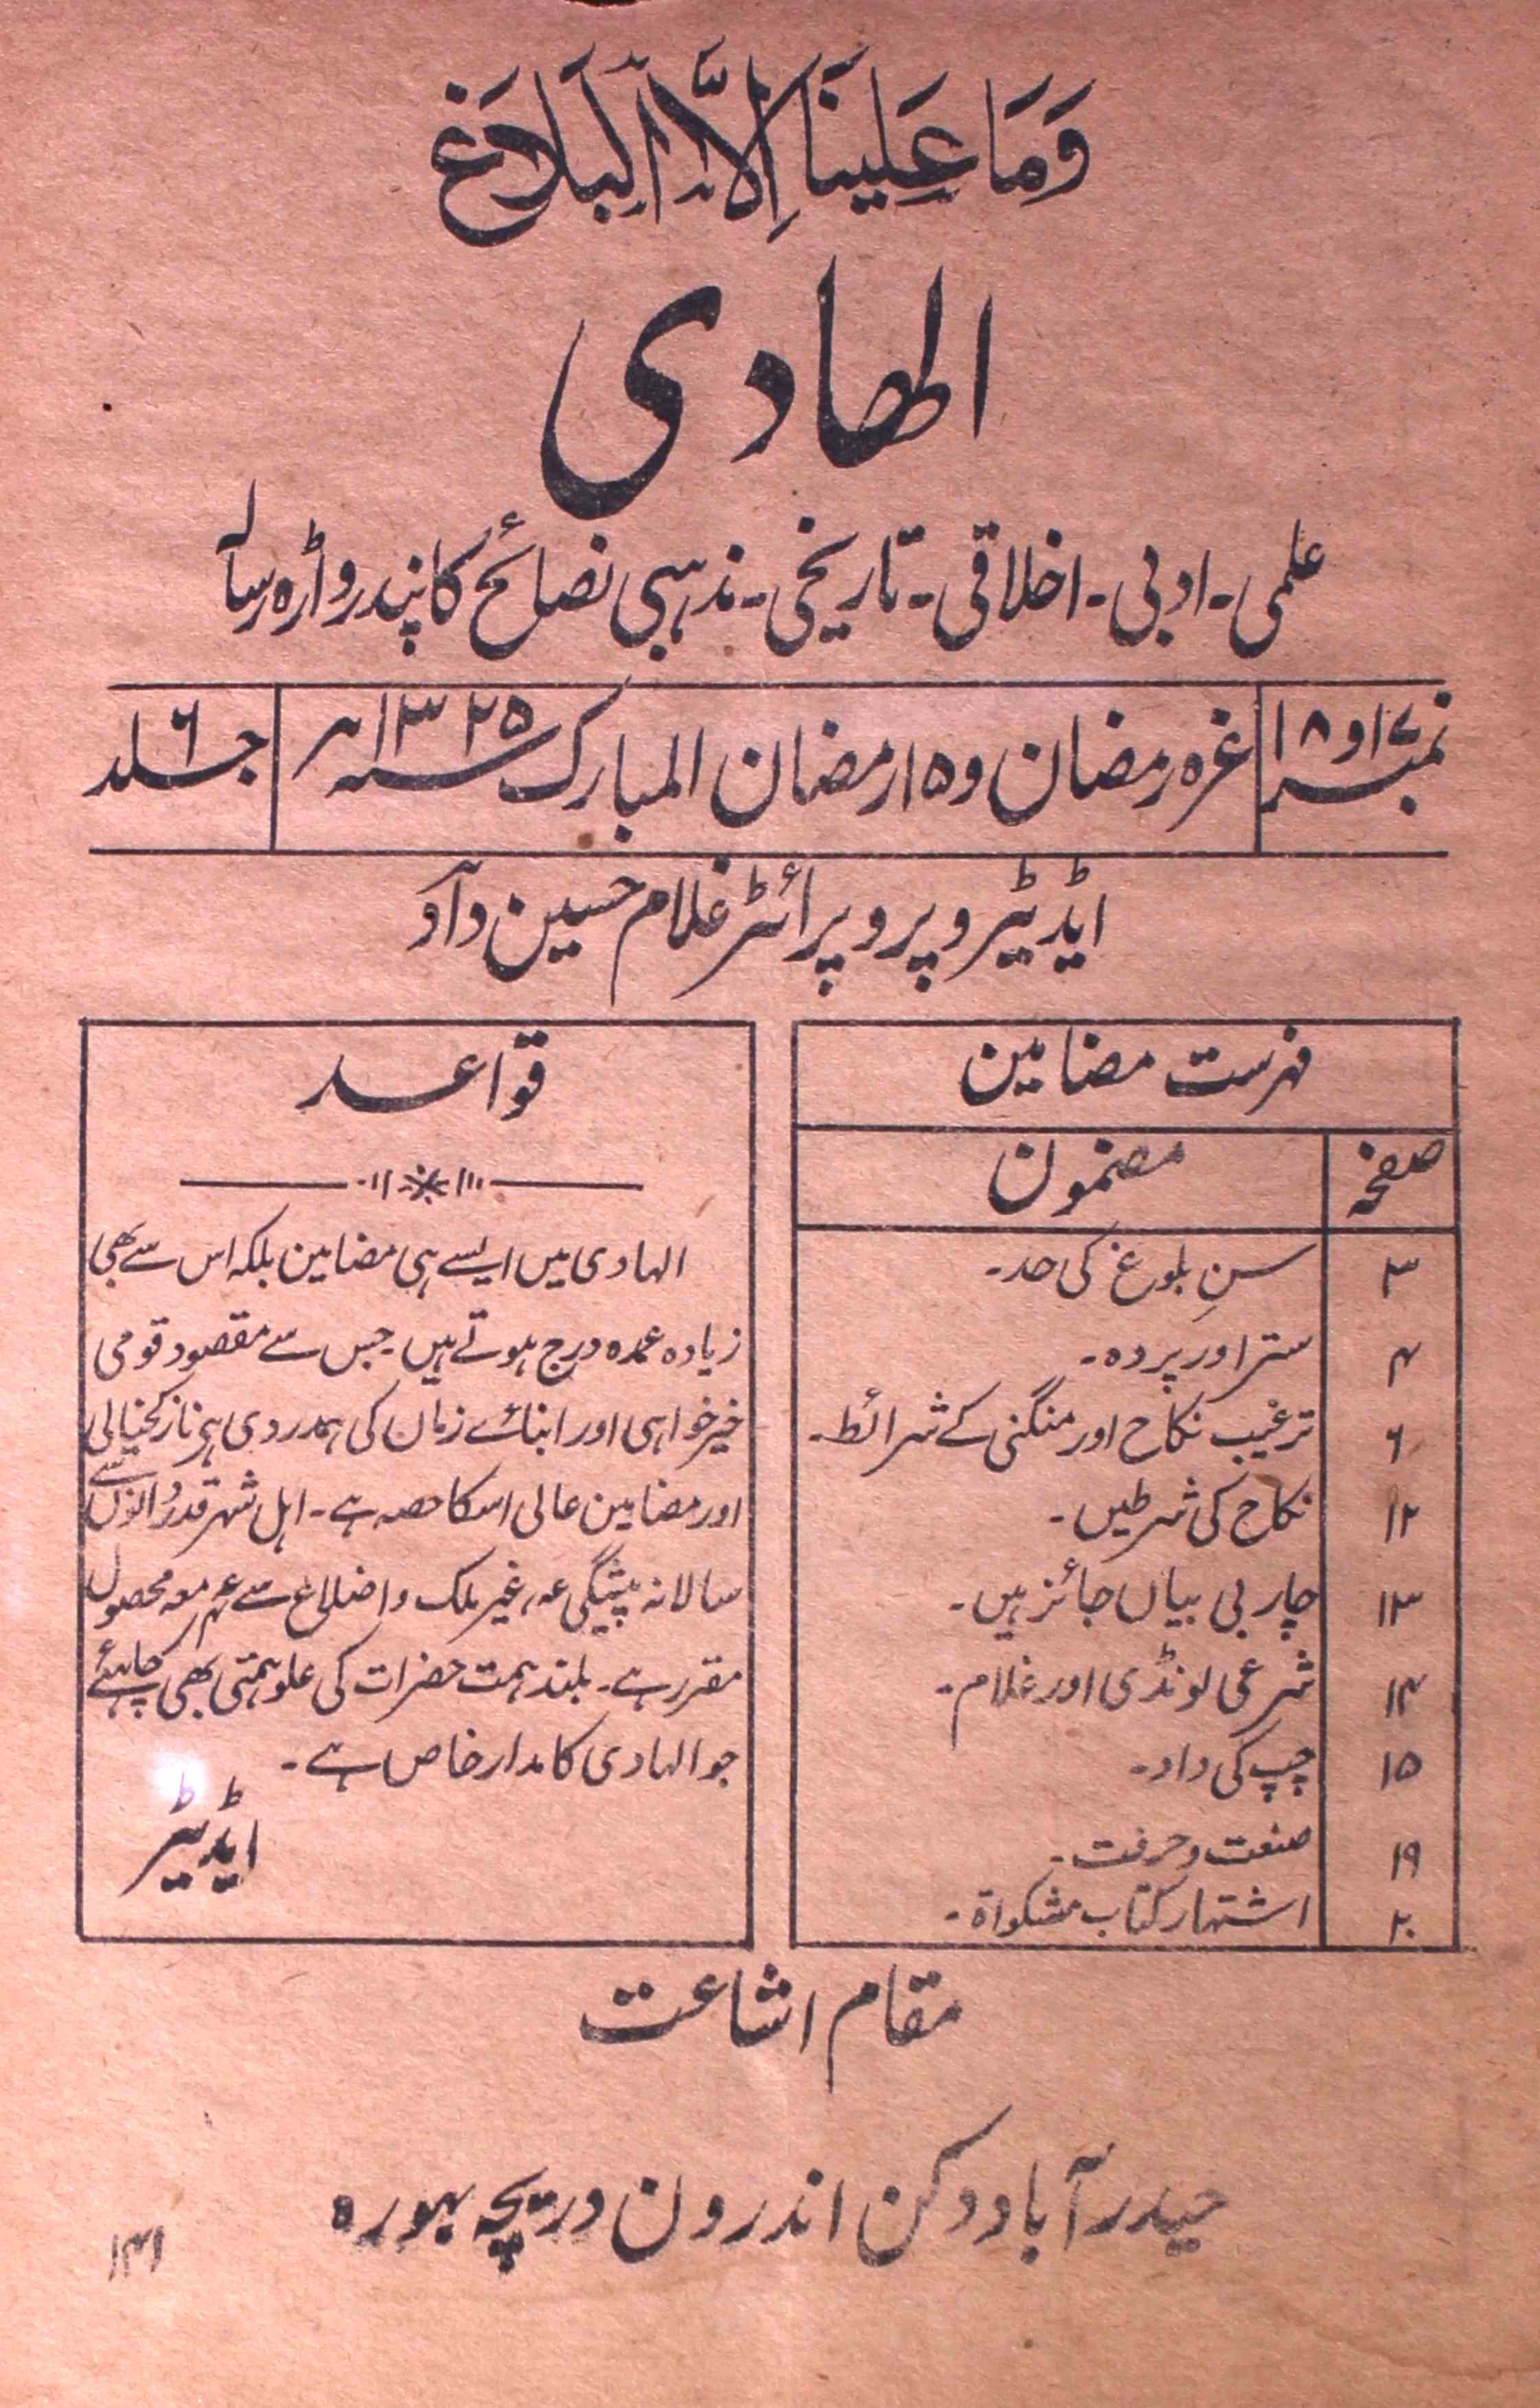 وَمَا عَلَینَا اِلَّا البَلَاغ
الھادی
علمی ۔ ادبی ۔ اخلاقی ۔ تاریخی ۔ مذہبی نصائح کا پندرواڑہ رسالہ
نمبر ۱۷ و ۱۸
غرہ رمضان و ۱۵ رمضان المبارک سنہ ۱۳۲۵ ھ
جلد ۶
ایڈیٹر و پروپرائٹر غلام حسین داؤد
فہرست مضامین
صفحہ مضمون
۳ سنِ بلوغ کی حد ۔
۴ ستر اور پردہ ۔
۶ ترغیب نکاح اور منگنی کے شرائط ۔
۱۲ نکاح کی شرطیں ۔
۱۳ چار بی بیاں جائز ہیں ۔
۱۴ شرعی لونڈی اور غلام ۔
۱۵ چپ کی داد ۔
۱۹ صنعت و حرفت ۔
۲۰ اشتہار کتاب مشکواۃ ۔
قواعد
الہادی میں ایسے ہی مضامین بلکہ اس سے بھی
زیادہ عمدہ درج ہوتے ہیں جس سے مقصود قومی
خیر خواہی اور ابنائے زمان کی ہمدردی ہے نازکخیالی
اور مضامین عالی اسکا حصہ ہے ۔ اہل شہر قدردانوں سے
سالانہ پیشگی غیر ملک و اضلاع سے معہ محصول
مقرر ہے ۔ بلند ہمت حضرات کی علو ہمتی بھی چاہئے
جو الہادی کا مدار خاص ہے ۔
ایڈیٹر
مقام اشاعت
حیدرآباد دکن اندرون دریچہ بہورہ
۱۴۱